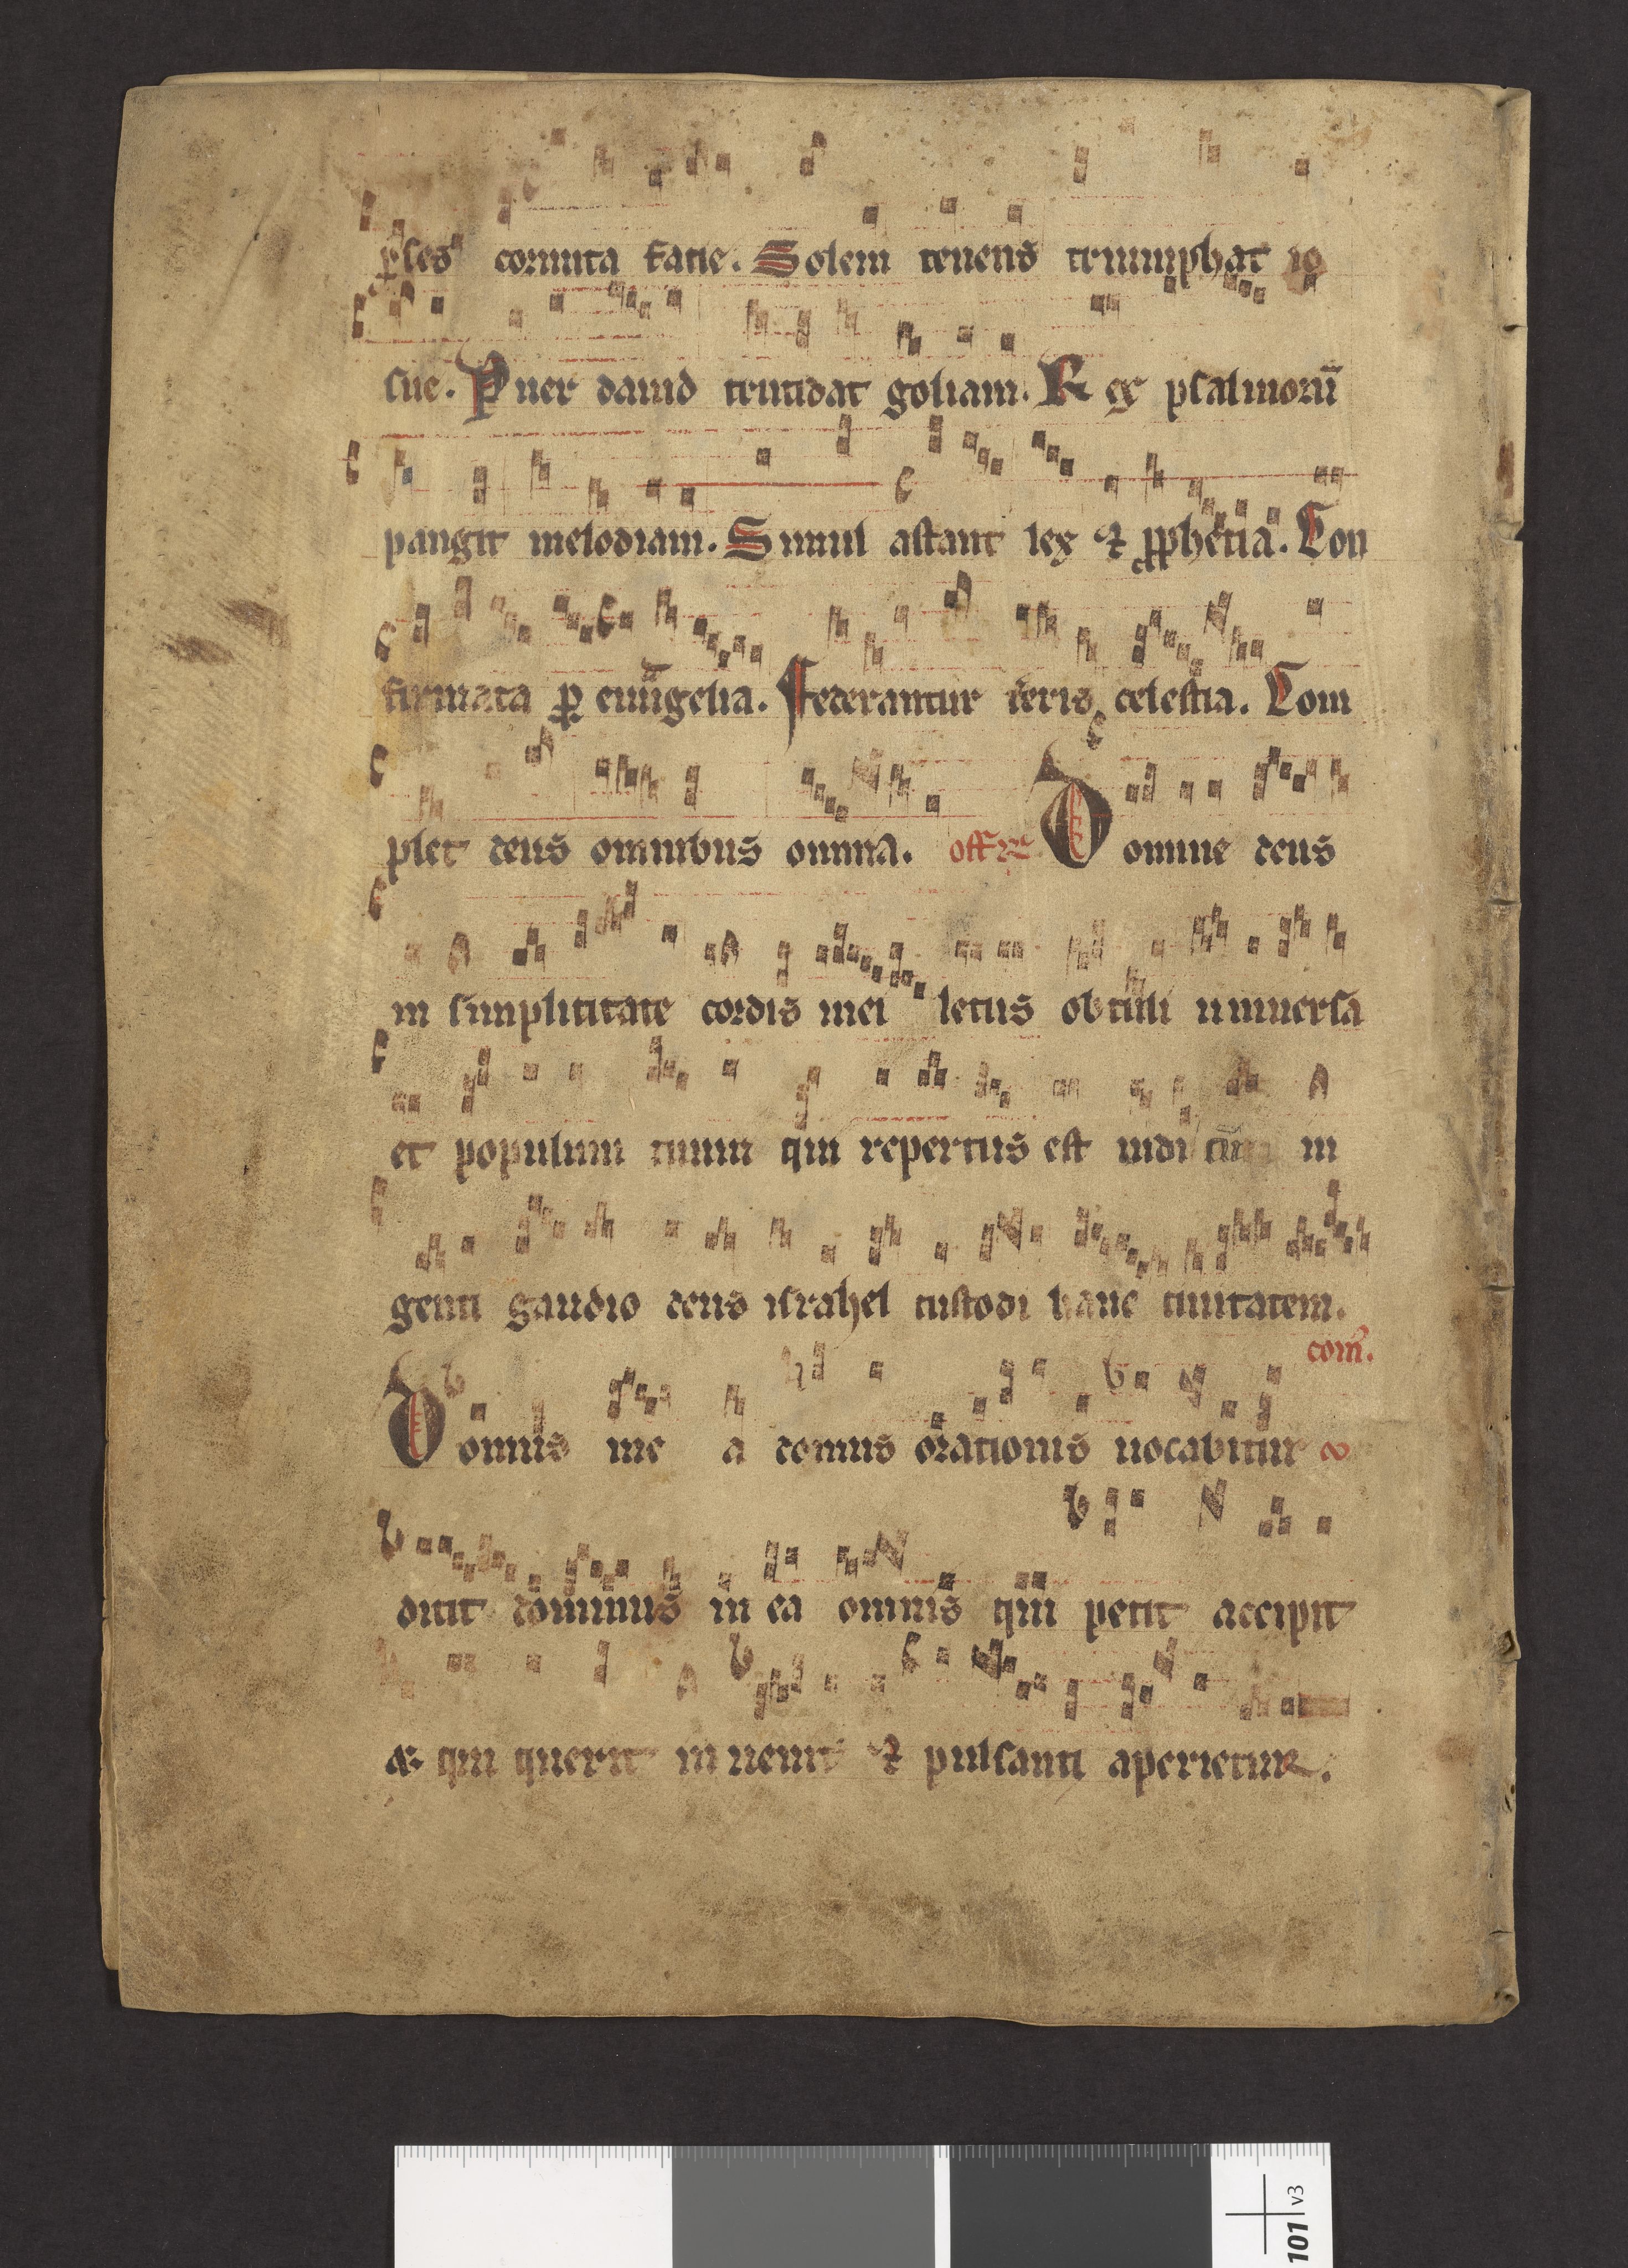 p̱ses cornuta facie. Solem tenens triumphat io
sue. Puer dauid trucidat goliam. Rex psalmorū
pangit melodiam. Simul astant lex ⁊ ꝓphetia. Con
firmata ꝑ euu̅gelia. Federantur terris celestia. Com
plet deus omnibus omnia. off̅r̅e Domine deus
in simplicitate cordis mei letus obtuli uniuersa
et populum tuum qui repertus est uidi cum in
genti gaudio deus israhel custodi hanc ciuitatem.
com̄.
Domus me a domus orationis uocabitur
dicit dominus in ea omnis qui petit accipit
& qui querit in uenit ⁊ pulsanti aperietur.
101 v3